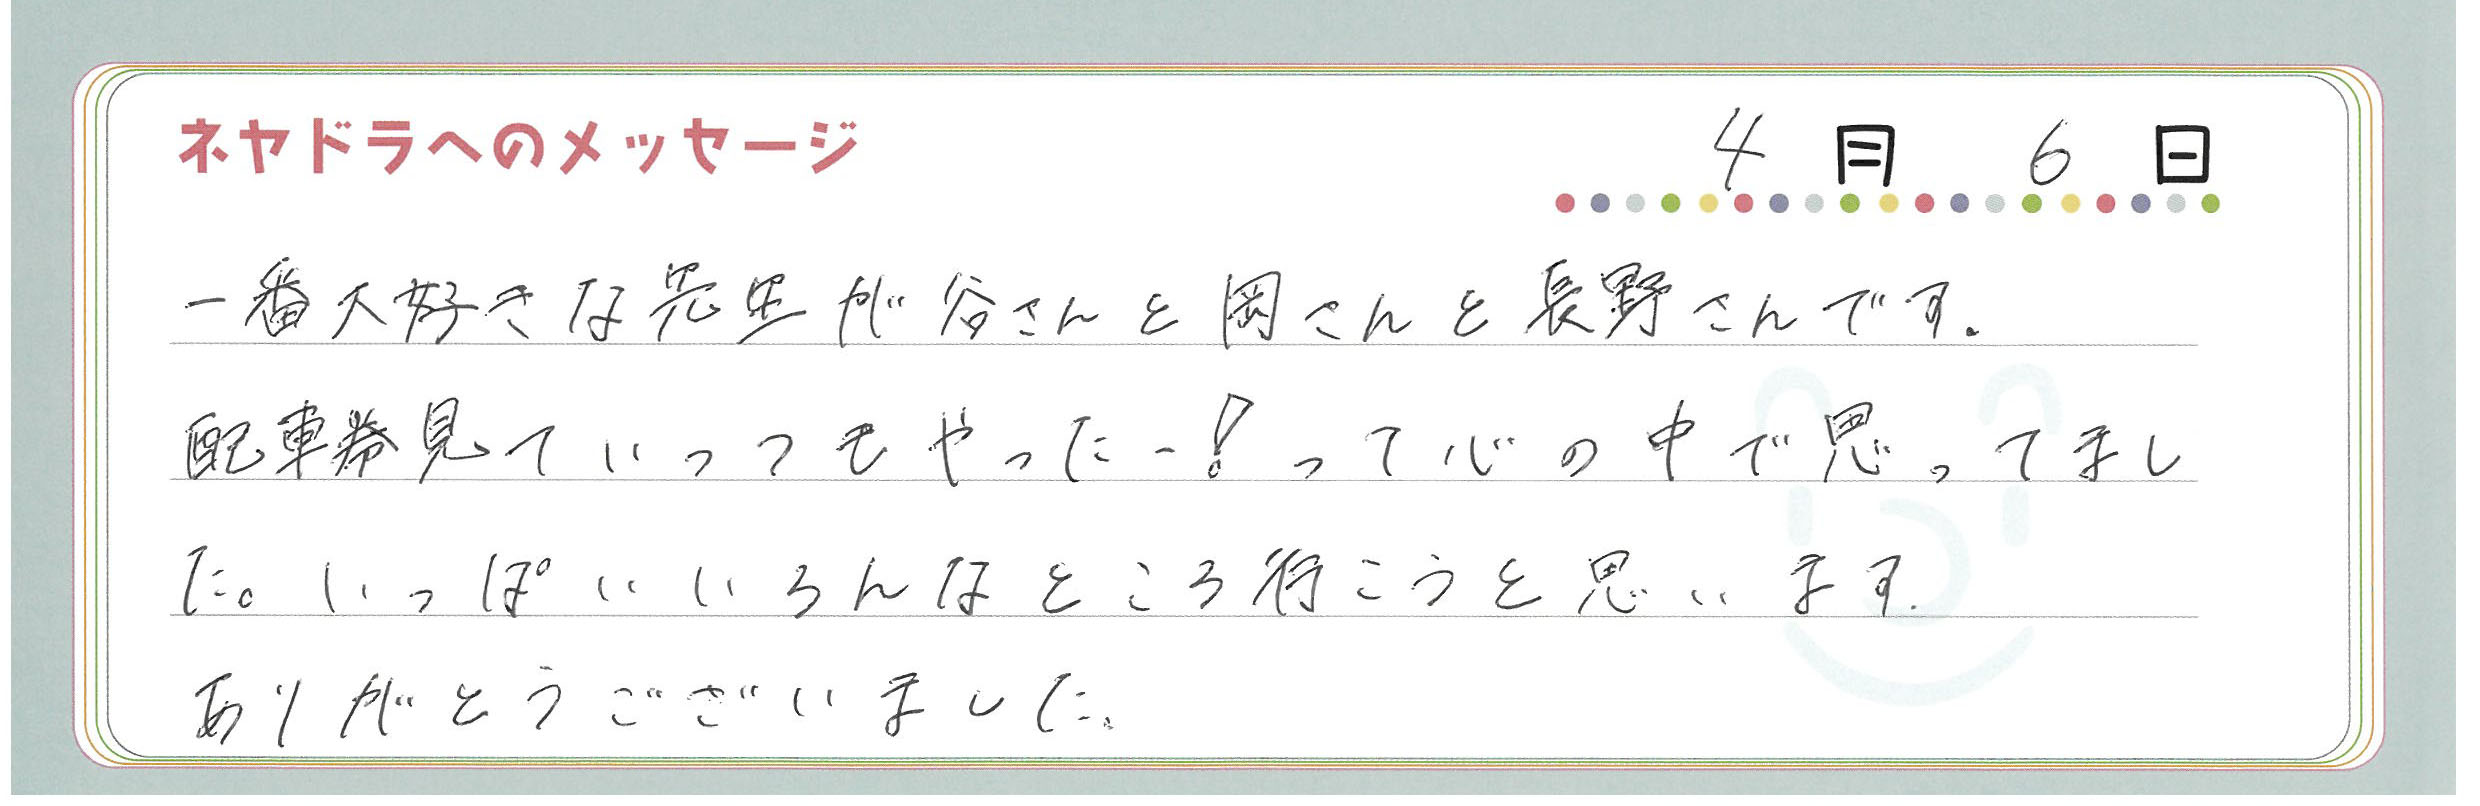 ネヤドラへのメッセージ
4月 6日
一番大好きな先生が谷さんと岡さんと長野さんです。
配車券見ていっつもやったー!って心の中で思ってまし
た。いっぱいいろんなところ行こうと思います.
ありがとうございました。